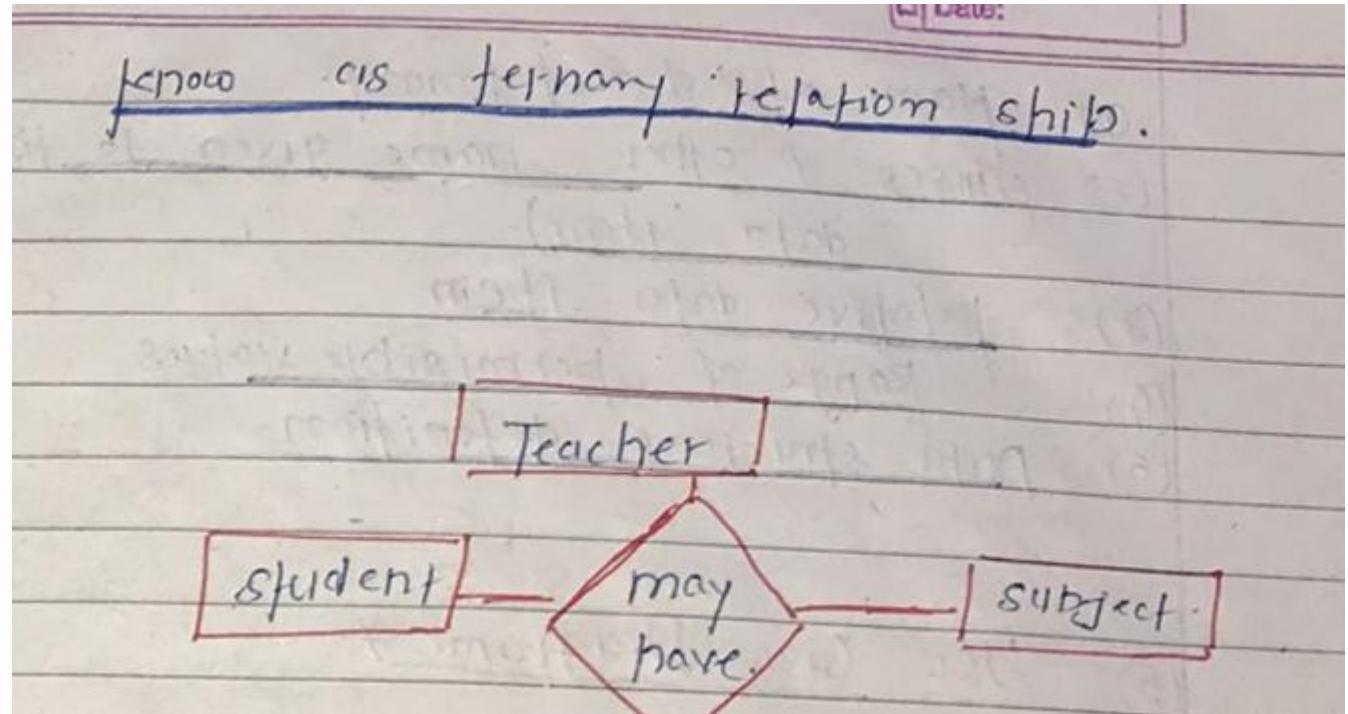 Date:
know as ternary relation ship.
Teacher
student
may
have.
subject.